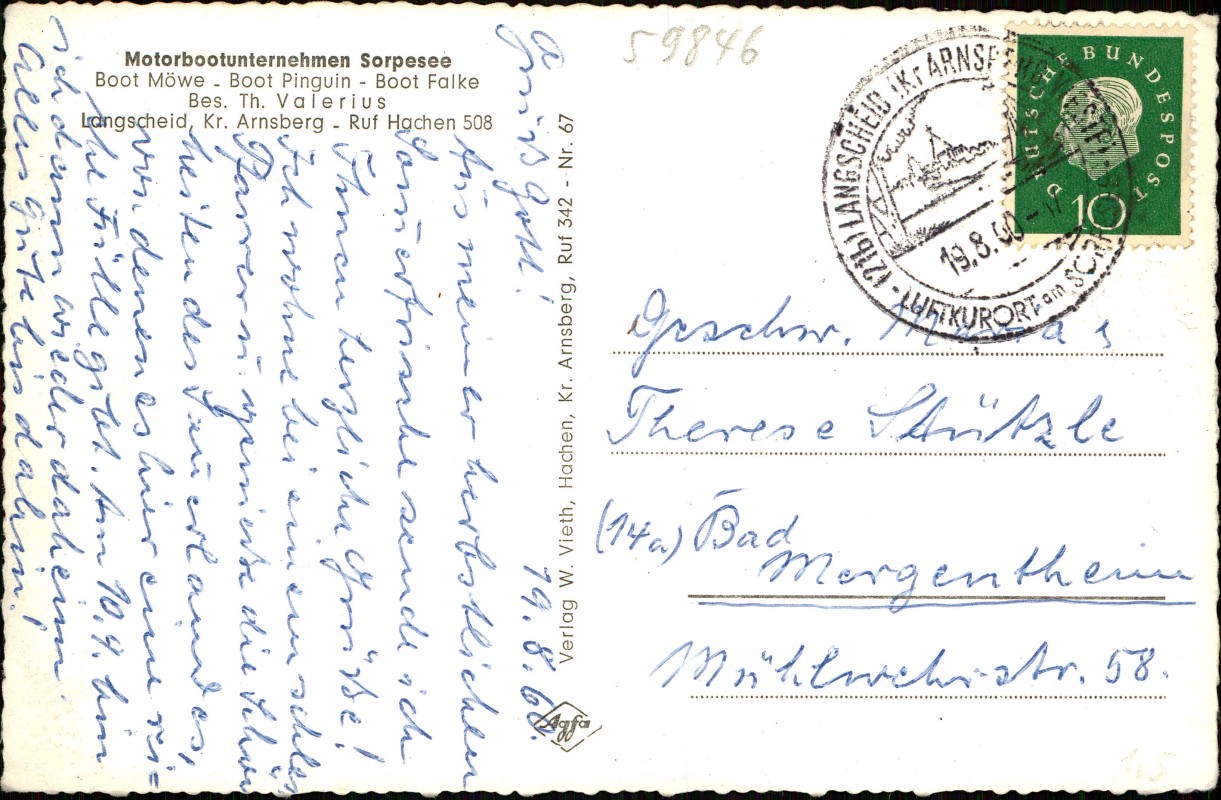 Motorbootunternehmen Sorpesee
Boot Möwe - Boot Pinguin - Boot Falke
Bes. Th. Valerius
Langscheid, Kr. Arnsberg - Ruf Hachen 508
19.8.60.
Grüß Gott!
Aus meiner herbstlichen
Sauerfrische sende ich
Ihnen herzliche Grüße!
Ich wohne bei einem
Pfarrer u. genieße die Schön
heiten des Sauerlandes,
von denen es hier eine rei=
che Fülle gibt. Am 10.9. bin
ich dann wieder daheim.
Alles gute bis dahin!
Verlag W. Vieth, Hachen, Kr. Arnsberg, Ruf 342 - Nr. 67
Agfa
59846
(21b) LANGSCHEID (Kr ARNSBERG
19.8.60
LUFTKURORT am
DEUTSCHE BUNDESPOST
10
Geschw. Maria &
Therese Stützle
(14a) Bad
Mergentheim
Mühlwehrstr. 58.